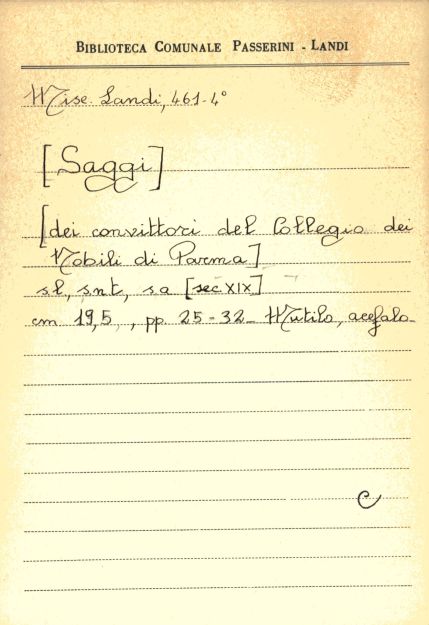 BIBLIOTECA COMUNALE PASSERINI - LANDI
Misc. Landi, 461-4°
[Saggi]
[dei convittori del Collegio dei
Nobili di Parma]
sl, snt, sa [sec XIX]
cm 19,5, pp. 25-32_ Mutilo, acefalo_
C